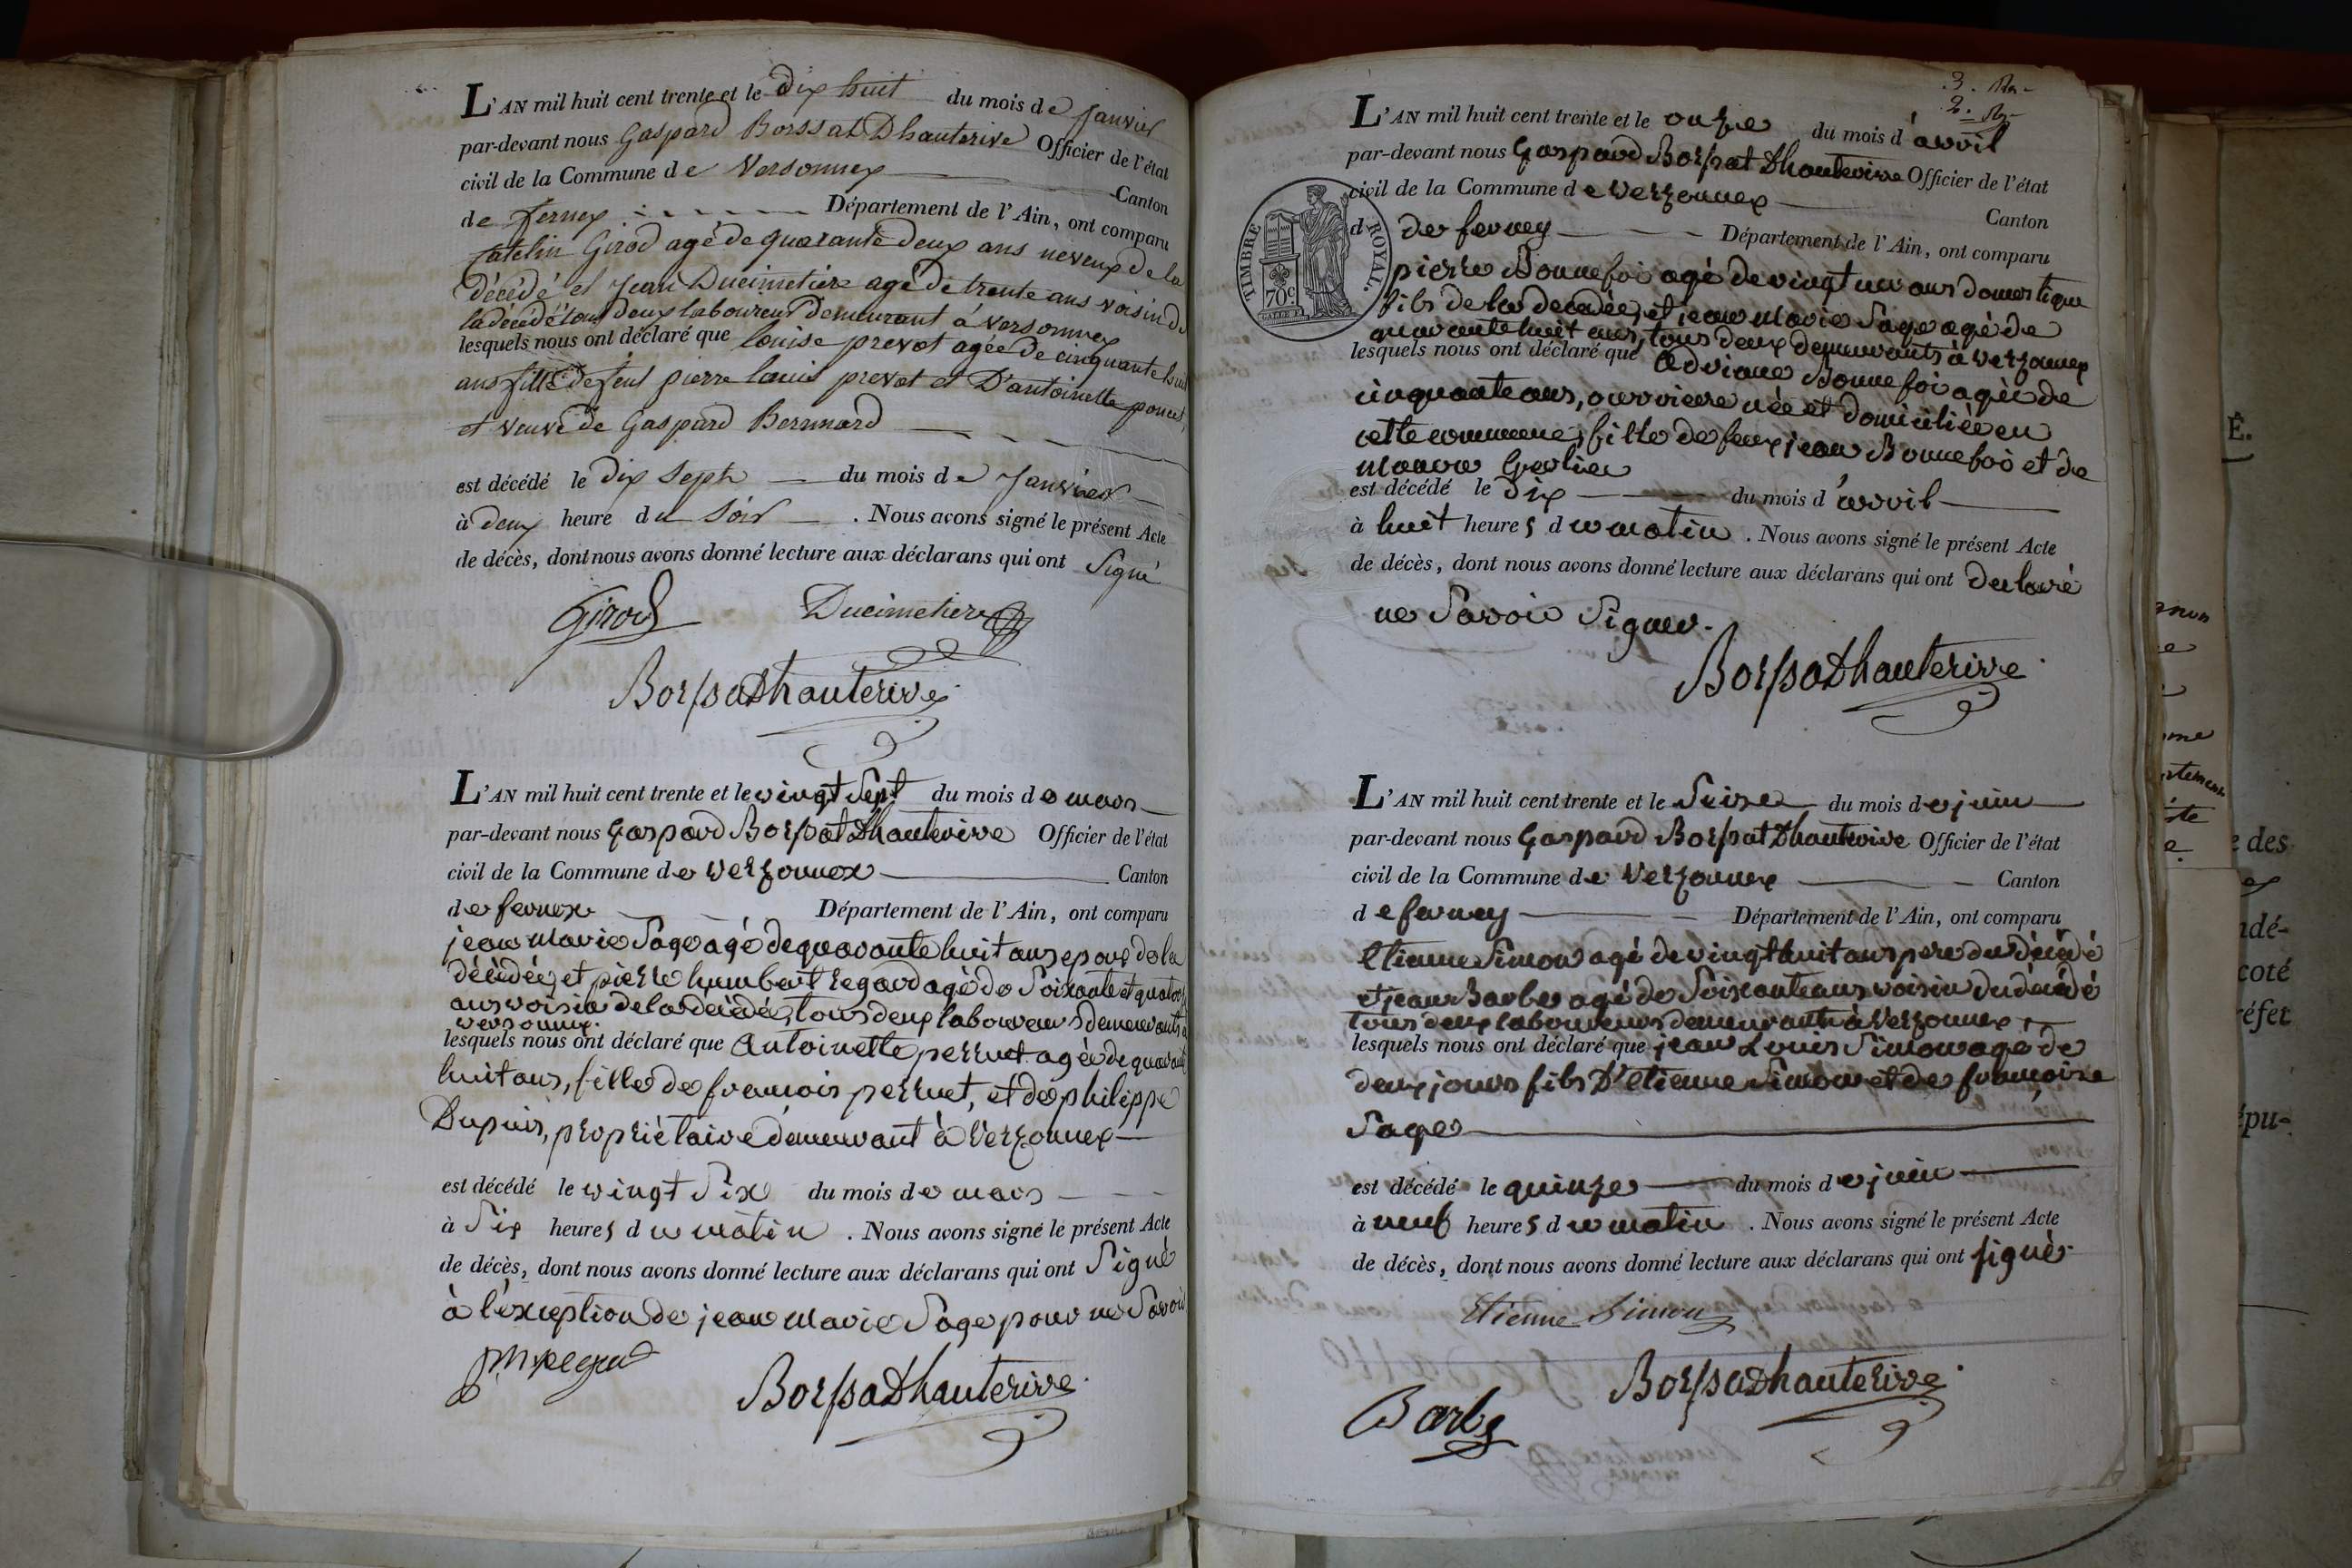 L'AN mil huit cent trente et le dix huit du mois de Janvier
par-devant nous Gaspard Borssat Dhauterive Officier de l'état
civil de la Commune de Versonnex Canton
de fernex Département de l'Ain, ont comparu
Girod agé de quarante deux ans neveux de la
décédé et Jean Ducimetiere agé de trente ans voisin de
la décédé tous deux laboureur Demeurant à Versonnex
lesquels nous ont déclaré que louise prevot agée de cinquante huit
ans fille de feu pierre louis prevot et D'antoinette poncet
et veuve de Gaspard Bernnard
est décédé le dix Sept du mois de Janvier
à deux heure du Soir . Nous avons signé le présent Acte
de décès, dont nous avons donné lecture aux déclarans qui ont Signé
Girod Ducimetiere
BorssatDhauterive
L'AN mil huit cent trente et le vingt Sept du mois de mars
par-devant nous Gaspard Borssat Dhauterive Officier de l'état
civil de la Commune de Verzonnex Canton
de fernex Département de l'Ain, ont comparu
jean Marie Sage agé de quarante huit ans epoux de la
décédée, et pierre humbert regard agé de Soixante et quatorze
ans voisin de la décédée, tous deux laboureurs demeurants à
versonnex.
lesquels nous ont déclaré que Antoinette perruet agée de quarante
huit ans, fille de françois perruet, et de philippe
Dupuis, propriétaire demeurant à Verzonnex
est décédé le vingt Six du mois de mars
à Six heures du matin . Nous avons signé le présent Acte
de décès, dont nous avons donné lecture aux déclarans qui ont Signé
à l'éxception de jean Marie Sage pour ne Savoir
BorssatDhauterive
3.
2.
L'AN mil huit cent trente et le onze du mois d'avril
par-devant nous Gaspard Borssat Dhauterive Officier de l'état
civil de la Commune de Verzonnex
Canton
d de ferney Département de l'Ain, ont comparu
TIMBRE ROYAL.
70c
pierre Bonnefoi agé de vingt un ans domestique
fils de la decedée, et jean Marie Sage agé de
quarante huit ans, tous deux demeurants à Verzonnex
lesquels nous ont déclaré que Adriane Bonnefoi agée de
cinquante ans, ouvriere née et domiciliée en
cette commune, fille de feux jean Bonnefoi et de
est décédé le Dix du mois d'avril
à huit heures du matin . Nous avons signé le présent Acte
de décès, dont nous avons donné lecture aux déclarans qui ont declaré
ne Savoir Signer.
BorssatDhauterive
L'AN mil huit cent trente et le Seize du mois de juin
par-devant nous Gaspard Borssat Dhauterive Officier de l'état
civil de la Commune de Verzonnex Canton
de ferney Département de l'Ain, ont comparu
Etienne Simon agé de vingt huit ans pere du décédé
et jean Barbe agé de Soixante ans voisin du décédé
tous deux laboureurs demeurants à Verzonnex
lesquels nous ont déclaré que jean Louis Simon age de
deux jours fils D'etienne Simon et de françoise
Sage
est décédé le quinze du mois de juin
à neuf heures du matin . Nous avons signé le présent Acte
de décès, dont nous avons donné lecture aux déclarans qui ont signés
Etienne Simon
BorssatDhauterive
Barbe